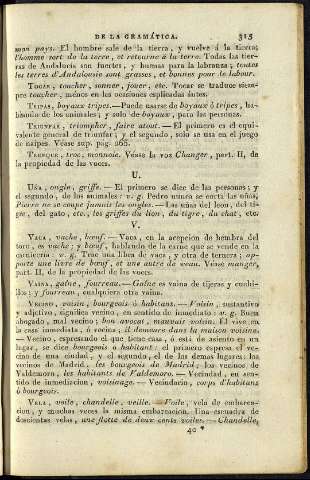 DE LA GRAMÁTICA. 315
mon pays. El hombre sale de la tierra, y vuelve á la tierra;
l'homme sort de la terre, et retourne à la terre. Todas las tier-
ras de Andalucía son fuertes, y buenas para la labranza; toutes
les terres d'Andalousie sont grasses, et bonnes pour le labour.
TOCAR, toucher, sonner, jouer, etc. Tocar se traduce siem-
pre toucher, ménos en las ocasiones explicadas ántes.
TRIPAS, boyaux tripes.—Puede usarse de boyaux ó tripes, ha-
blando de los animales; y solo de boyaux, para las personas.
TRIUNFAR, triompher, faire atout.—El primero es el equi-
valente general de triunfar; y el segundo, solo se usa en el juego
de naipes. Véase sup. pág. 266.
TRUEQUE, troc, monnoie. Véase la voz Changer, part. II, de
la propiedad de las voces.
U.
UÑA, ongle, griffe.—El primero se dice de las personas; y
el segundo, de los animales: v. g. Pedro nunca se corta las uñas,
Pierre ne se coupe jamais les ongles.—Las uñas del leon, del ti-
gre, del gato, etc., les griffes du lion, du tigre, du chat, etc.
V.
VACA, vache, bœuf.—Vaca, en la acepcion de hembra del
toro, es vache; y bœuf, hablando de la carne que se vende en la
carnicería: v. g. Trae una libra de vaca, y otra de ternera; ap-
porte une livre de bœuf, et une autre de veau. Véase manger,
part. II, de la propiedad de las voces.
VAINA, gaîne, fourreau.—Gaîne es vaina de tijeras y cuchi-
llos; y fourreau, cualquiera otra vaina.
VECINO, voisin, bourgeois ó habitans.—Voisin, sustantivo
y adjetivo, significa vecino, en sentido de inmediato: v. g. Buen
abogado, mal vecino; bon avocat, mauvais voisin. El vive en
la casa inmediata, ó vecina; il demeure dans la maison voisine.
—Vecino, expresando el que tiene casa, ó está de asiento en un
lugar, se dice bourgeois ó habitant: el primero expresa el ve-
cino de una ciudad, y el segundo, el de las demas lugares: los
vecinos de Madrid, les bourgeois de Madrid; los vecinos de
Valdemoro, les habitants de Valdemoro.—Vecindad, en sen-
tido de inmediacion, voisinage.—Vecindario, corps d'habitans
ó bourgeois.
VELA, voile, chandelle, veille.—Voile, vela de embarca-
cion, y muchas veces la misma embarcacion. Una escuadra de
doscientas velas, une flotte de deux cents voiles.—Chandelle,
40 *